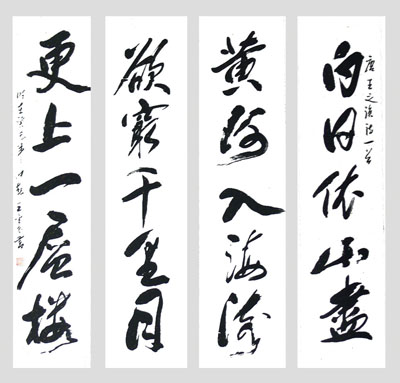 唐王之渙詩一首
白日依山盡
黄河入海流
欲窮千里目
更上一層樓
時在癸巳年